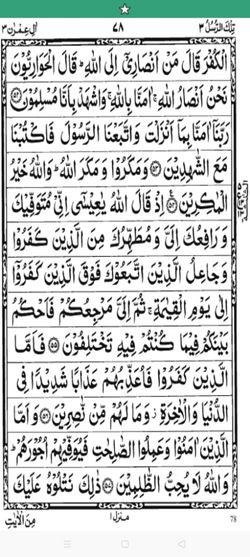 تِلْكَ الرُّسُلُ ٣ ٧٨ اٰلِ عِمْرٰن ٣
الْكُفْرَ قَالَ مَنْ اَنْصَارِيْۤ اِلَى اللّٰهِؕ قَالَ الْحَوَارِيُّوْنَ
نَحْنُ اَنْصَارُ اللّٰهِۚ اٰمَنَّا بِاللّٰهِۚ وَاشْهَدْ بِاَنَّا مُسْلِمُوْنَ ﴿۵۲﴾
رَبَّنَاۤ اٰمَنَّا بِمَاۤ اَنْزَلْتَ وَاتَّبَعْنَا الرَّسُوْلَ فَاكْتُبْنَا
مَعَ الشّٰهِدِيْنَ ﴿۵۳﴾ وَمَكَرُوْا وَمَكَرَ اللّٰهُؕ وَاللّٰهُ خَيْرُ
الْمٰكِرِيْنَ ﴿۵۴﴾ اِذْ قَالَ اللّٰهُ يٰعِيْسٰۤى اِنِّيْ مُتَوَفِّيْكَ
وَرَافِعُكَ اِلَيَّ وَمُطَهِّرُكَ مِنَ الَّذِيْنَ كَفَرُوْا
وَجَاعِلُ الَّذِيْنَ اتَّبَعُوْكَ فَوْقَ الَّذِيْنَ كَفَرُوْۤا
اِلٰى يَوْمِ الْقِيٰمَةِۚ ثُمَّ اِلَيَّ مَرْجِعُكُمْ فَاَحْكُمُ
بَيْنَكُمْ فِيْمَا كُنْتُمْ فِيْهِ تَخْتَلِفُوْنَ ﴿۵۵﴾ فَاَمَّا
الَّذِيْنَ كَفَرُوْا فَاُعَذِّبُهُمْ عَذَابًا شَدِيْدًا فِي
الدُّنْيَا وَالْاٰخِرَةِؗ وَمَا لَهُمْ مِّنْ نّٰصِرِيْنَ ﴿۵۶﴾ وَاَمَّا
الَّذِيْنَ اٰمَنُوْا وَعَمِلُوا الصّٰلِحٰتِ فَيُوَفِّيْهِمْ اُجُوْرَهُمْؕ
وَاللّٰهُ لَا يُحِبُّ الظّٰلِمِيْنَ ﴿۵۷﴾ ذٰلِكَ نَتْلُوْهُ عَلَيْكَ
مِنَ الْاٰيٰتِ منزل ١ 78